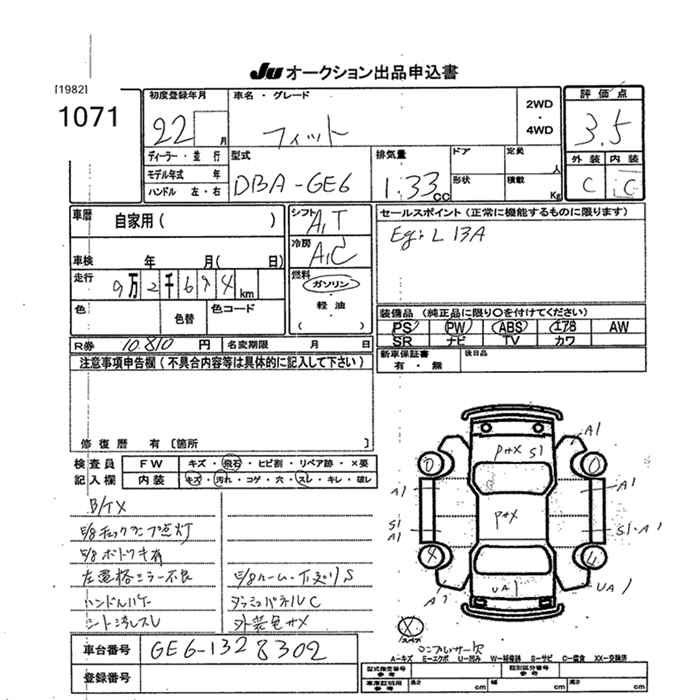 JU オークション出品申込書
[1982]
1071
初度登録年月
22
月
車名・グレード
フィット
2WD
・
4WD
評価点
3.5
外装 内装
C C
ディーラー・並行
モデル年式 年
ハンドル 左・右
型式
DBA-GE6
排気量
1.33 cc
ドア
定員
人
形状
積載
Kg
車歴
自家用( )
車検 年 月( 日)
走行
9万2千694km
色
色替
色コード
シフト
A,T
冷房
A,C
燃料
ガソリン
・
軽油
( )
セールスポイント(正常に機能するものに限ります)
Eg: L 13A
装備品 (純正品に限り○を付けてください)
PS PW ABS エアB AW
SR ナビ TV カワ
新車保証書
有・無
後日品
R券 10810 円 名変期限 月 日
注意事項申告欄(不具合内容等は具体的に記入して下さい)
修復歴 有〔箇所 〕
検査員
記入欄
FW キズ・飛石・ヒビ割・リペア跡・×要
内装 キズ・汚れ・コゲ・穴・スレ・キレ・破レ
B/TX
E/gチェックランプ点灯
ハンドルハゲ
ダッシュパネルC
A1
Pナメ S1
A1
A1
Pナメ
S1
A1
S1・A1
UA1
UA1
スペア
A-キズ E-エクボ U-凹み W-補修跡 S-サビ C-腐食 XX-交換済
車台番号 GE6-1328302
登録番号
型式指定番号
参考
類別区分番号
参考
車庫証明用
参考
長さ cm 幅 cm 高さ cm